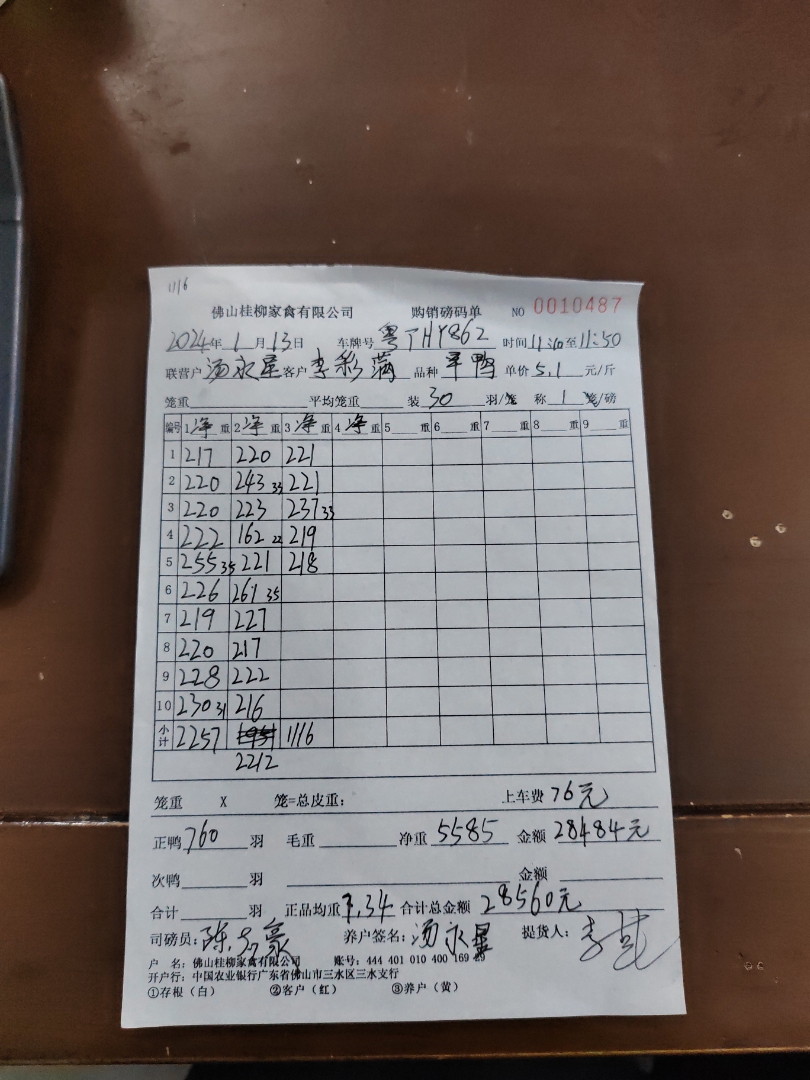 1116
佛山桂柳家禽有限公司 购销磅码单 NO 0010487
2024年 1月13日 车牌号 粤THY862 时间 11:10至11:50
联营户 汤永星 客户 李彩满 品种 平鸭 单价 5.1 元/斤
笼重 平均笼重 装 30 羽/笼 称 1 笼/磅
编号 1 净 重 2 净 重 3 净 重 4 净 重 5 重 6 重 7 重 8 重 9 重
1 217 220 221
2 220 243 33 221
3 220 223 237 33
4 222 162 22 219
5 255 35 221 218
6 226 261 35
7 219 227
8 220 217
9 228 222
10 230 31 216
小计 2257 1116
2212
笼重 X 笼=总皮重: 上车费 76元
正鸭 760 羽 毛重 净重 5585 金额 28484元
次鸭 羽 金额
合计 羽 正品均重 7.34 合计总金额 28560元
司磅员: 养户签名: 汤永星 提货人:
户 名: 佛山桂柳家禽有限公司 账号: 444 401 010 400 169
开户行: 中国农业银行广东省佛山市三水区三水支行
①存根(白) ②客户(红) ③养户(黄)